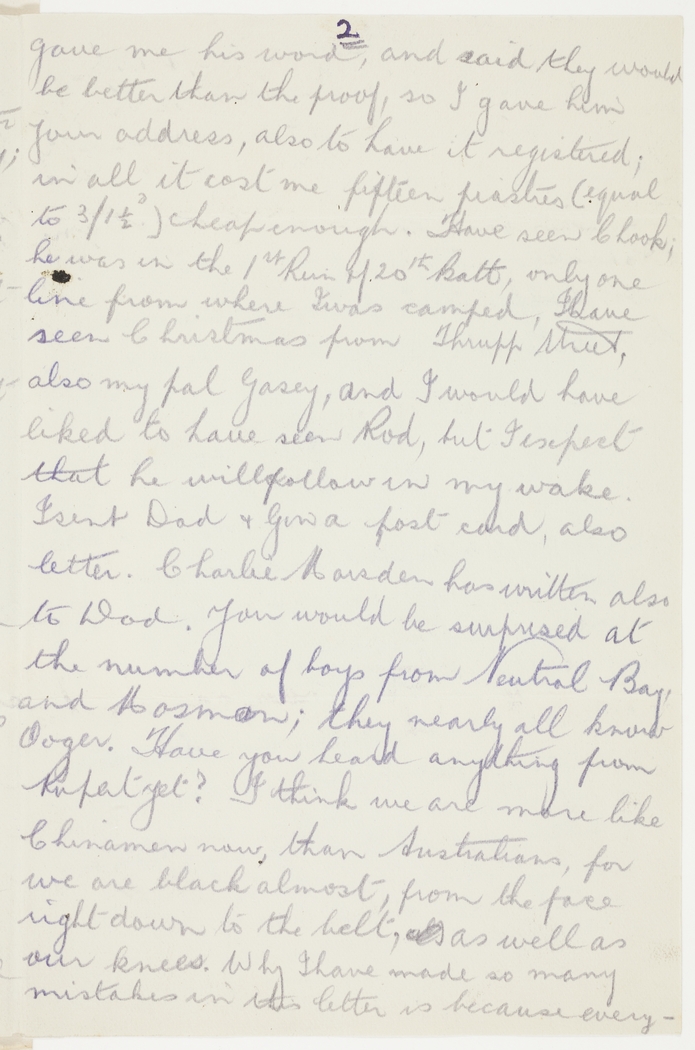 2
gave me his word, and said they would
be better than the proof, so I gave him
your address, also to have it registered;
in all it cost me fifteen piastres (equal
to 3/1½ᵈ) cheap enough. Have seen Chook;
he was in the 1st Rein of 20th Batt, only one
line from where I was camped, I have
seen Christmas from Thrupp Street,
also my pal Gasey, and I would have
liked to have seen Rod, but I expect
that he will follow in my wake.
I sent Dad & Gow a post card, also
letter. Charlie Marsden has written also
to Dad. You would be surprised at
the number of boys from Neutral Bay,
and Mosman; they nearly all know
Ooger. Have you heard anything from
Rupert yet? I think we are more like
Chinamen now, than Australians, for
we are black almost, from the face
right down to the belt, as well as
our knees. Why I have made so many
mistakes in this letter is because every-